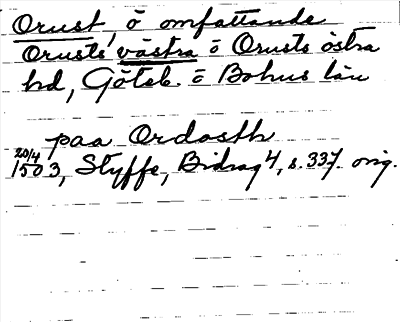 Orust, ö omfattande
Orusts västra o Orusts östra
hd, Göteb. o Bohus län
paa Ordosth
20/4
1503, Styffe, Bidrag 4, s. 337. orig.